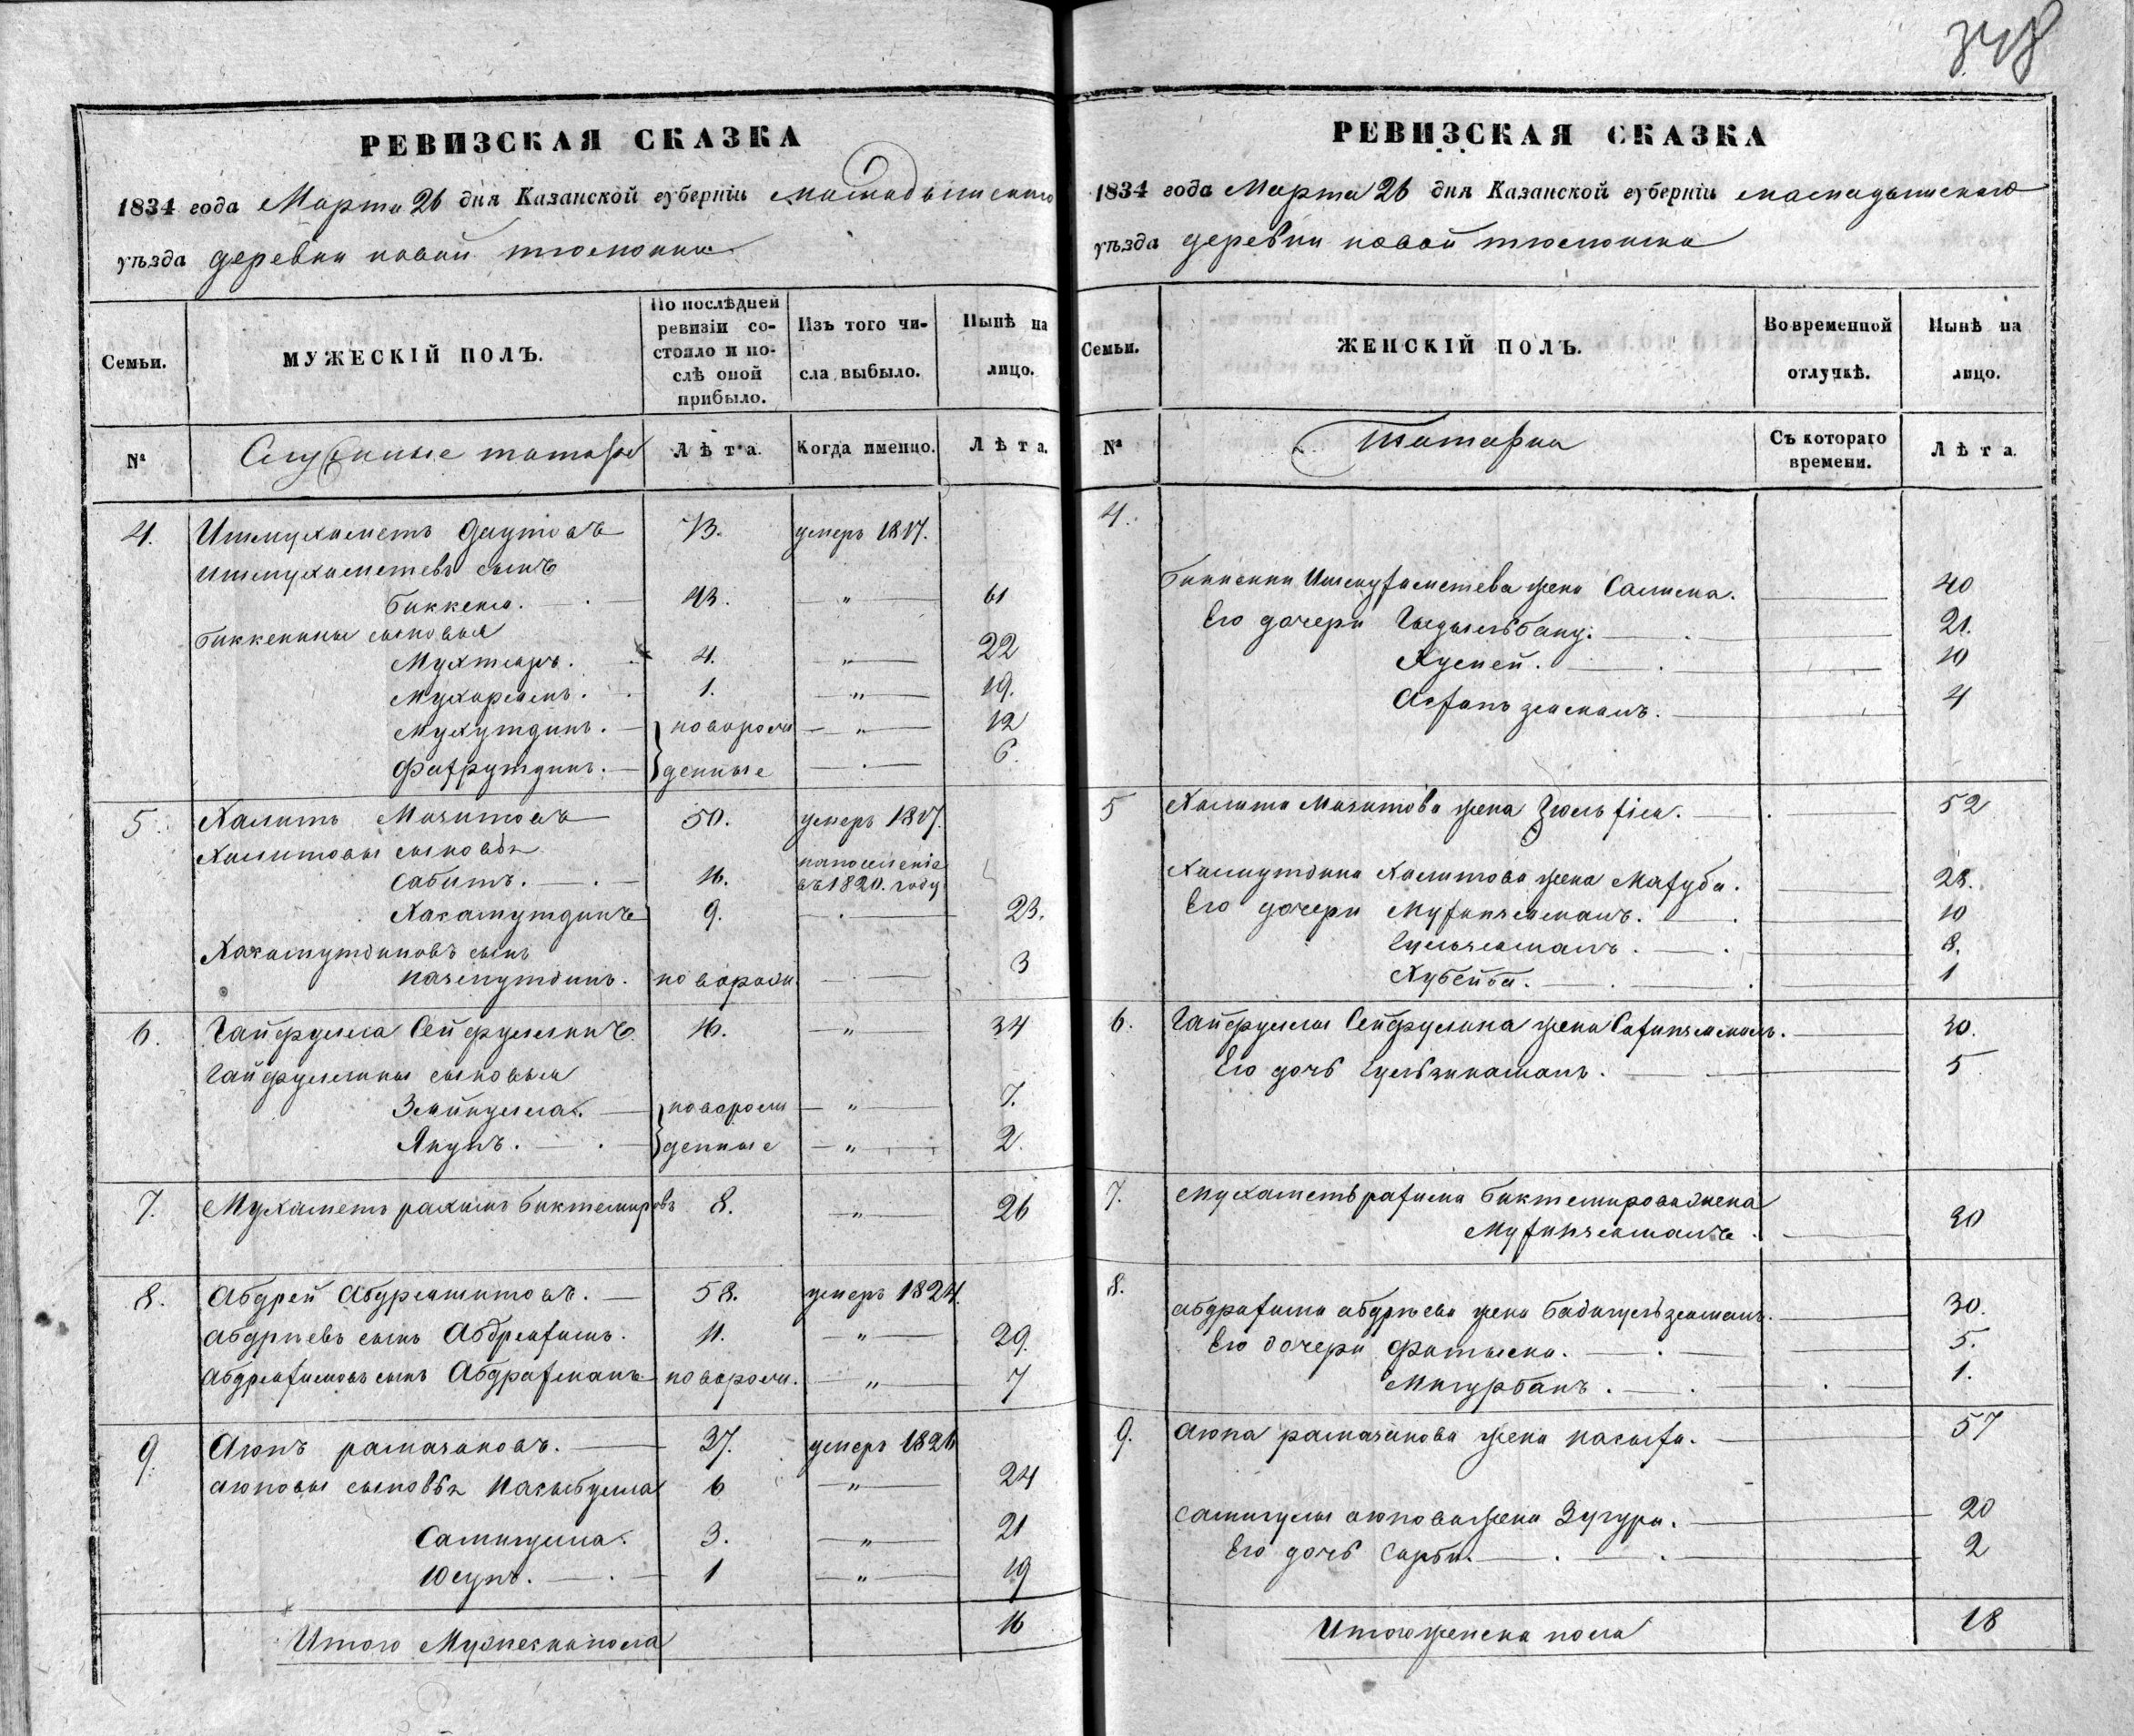 348
РЕВИЗСКАЯ СКАЗКА
1834 года Марта 26 дня Казанской губерніи мамадышскаго
уѣзда деревни новой
Семьи.
МУЖЕСКІЙ ПОЛЪ.
По послѣдней ревизіи состояло и послѣ оной прибыло.
Изъ того числа выбыло.
Нынѣ на лицо.
№
Служилые татары
Лѣта.
Когда именно.
Лѣта.
4. Ишмухаметъ Даутовъ 73. умеръ 1817.
Ишмухаметевъ сынъ
Биккеня. 43. — " — 61
Биккенины сыновья
Мухтаръ. 4. — " — 22
Мухарямъ. 1. — " — 19.
Мухутдинъ. новорож — " — 12
Фахрутдинъ. денные — . — 6.
5. Халитъ Мазитовъ 50. умеръ 1817.
Халитовы сыновья
Сабитъ. 16. въ 1820. году
9. — . — 23.
сынъ
новорож. — . — 3
6. Гайфулла Сейфуллинъ 16. — " — 34
Гайфуллины сыновья
Зейнулла. новорож — " — 7.
Якупъ. денные — " — 2.
7. Мухаметъ рахимъ биктемировъ 8. — " — 26
8. Абдрей Абдрешитовъ. 58. умеръ 1824.
абдріевъ сынъ Абдрахимъ. 11. — " — 29.
абдрахимовъ сынъ Абдрахманъ новорож. — " — 7
9. Аюпъ рамазановъ. 37. умеръ 1826
аюповы сыновья Насыбулла 6 — " — 24
Самигулла. 3. — " — 21
Юсупъ. 1 — " — 19
Итого Мужеска пола 16
РЕВИЗСКАЯ СКАЗКА
1834 года Марта 26 дня Казанской губерніи мамадышскаго
уѣзда деревни новой
Семьи.
ЖЕНСКІЙ ПОЛЪ.
Во временной отлучкѣ.
Нынѣ на лицо.
№
Татарки
Съ котораго времени.
Лѣта.
4.
Биккени Ишмухаметева жена Салима. 40
Его дочери 21.
Хусней. 10
4
5 Халита Мазитова жена Зюльфія. 52
Халитова жена Махуба. 28.
Его дочери 10
Гульжамалъ. 8.
Хубейба. 1
6. Гайфуллы Сейфулина жена 30.
Его дочь 5
7. Мухаметьрахима биктемирова жена
20
8.
абдрахима абдріева жена 30.
Его дочери Фатыма. 5.
1.
9. Аюпа рамазанова жена насыха. 57
Самигулы аюпова жена Зугура. 20
Его дочь Сарби. 2
Итого женска пола 18